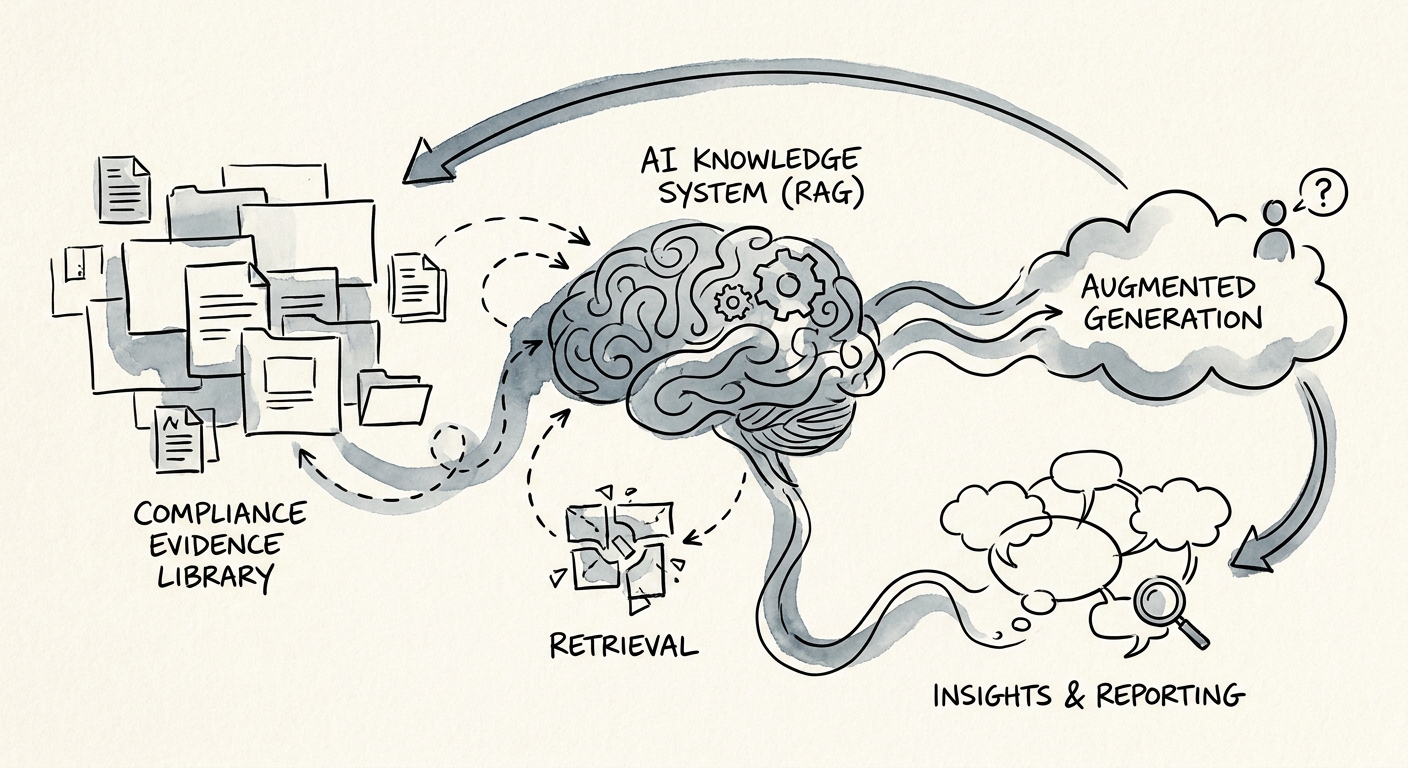 AI KNOWLEDGE
SYSTEM (RAG)
?
AUGMENTED
GENERATION
COMPLIANCE
EVIDENCE
LIBRARY
RETRIEVAL
INSIGHTS & REPORTING